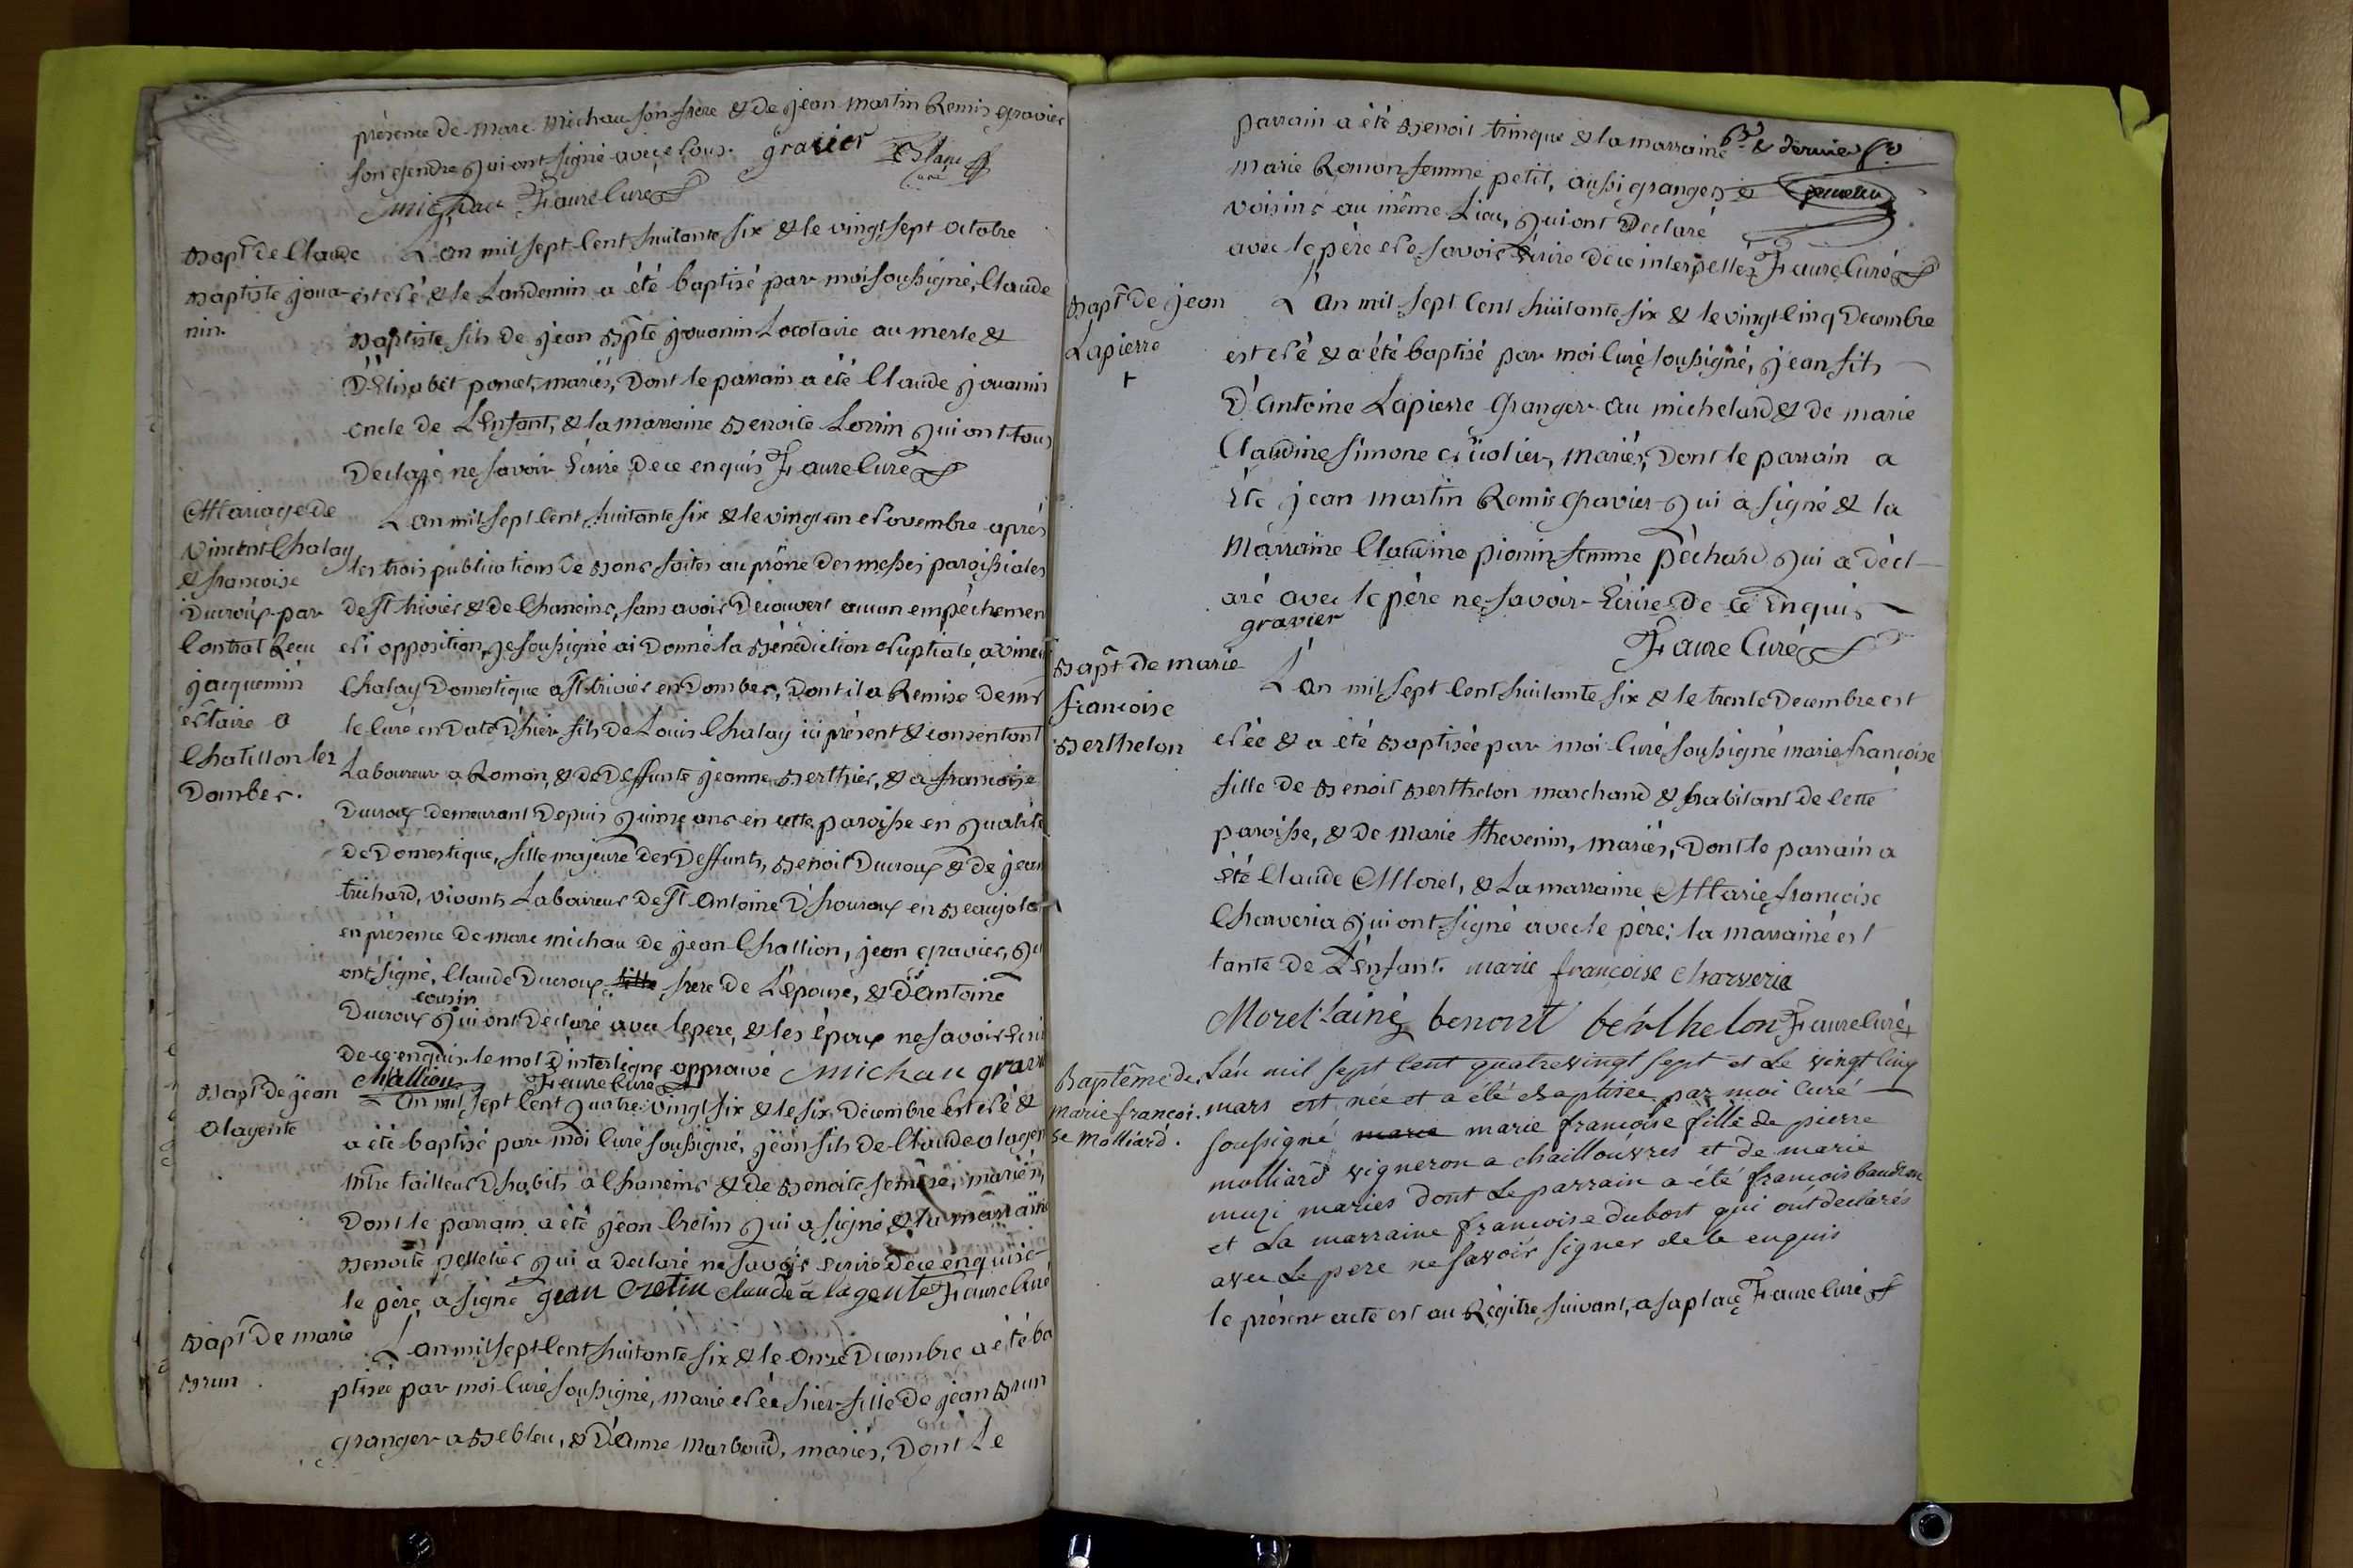 présence de Marc Michau son frère & de jean martin Remis gravier
son gendre qui ont signé avec nous. gravier
michau Faure Curé
Bapt de Claude
Baptiste joua-
nin.
L'an mil sept Cent huitante six & le vingt sept octobre
est né & le Landemin a été baptisé par moi soussigné, Claude
Baptiste fils de jean Bpte jouanin Locotaire au merle &
D'Elisabet poncet, mariés, Dont le parrain a été Claude jouanin
oncle de L'Enfant, & la marraine Benoite Lorrin qui ont tous
Declaré ne savoir Ecrire de ce enquis Faure Curé
Mariage de
Vincent Chalay
& francoise
Duroux par
Contrat Recu
jacquemin
notaire a
Chatillon lez
Dombes.
L'an mil sept Cent huitante six & le vingt un novembre après
les trois publications de Bans faites au prône des messes paroissiales
de St trivier & de Chaneins, sans avoir Decouvert aucun empêchemen
ni opposition, je soussigné ai Donné la Bénédiction nuptiale a vincen
Chalay Domestique a St trivier en Dombes, Dont il a Remise de mr
le Curé en Date D'hier fils de Louis Chalay ici présent & consentant
Laboureur a Roman, & de Deffunte jeanne Berthier, & a francoise
Duroux demeurant Depuis quinze ans en cette paroisse en qualité
de Domestique, fille majeure des Deffunts, Benoit Duroux & de jean
trichard, vivants Laboureurs de St Antoine D'houroux en Beaujolo
en présence de marc michau de jean Challion, jean gravier, qu
ont signé, Claude Duroux fille frere de L'épouse, & D'Antoine
cousin
Duroux qui ont Declaré avec le pere, & les époux ne savoir Ecri
de ce enquis. le mot D'interligne approuvé michau grav
challion Faure Curé
Bapt de jean
Alagente
L'an mil sept Cent quatre vingt six & le six Décembre est né &
a été baptisé par moi Curé soussigné, jean fils de Claude alagen
mtre tailleur D'habits a Chaneins & de Benoite semêne, mariés,
Dont le parrain a été jean Cretin qui a signé & la marraine
Benoite pelletier qui a declaré ne savoir ecrire de ce enquise
le père a signé jean Cretin claude a lagente Faure Curé
Bapt de marie
Brun
L'an mil sept Cent huitante six & le onze Decembre a été ba
ptisée par moi Curé soussigné, marie née hier fille de jean Brun
granger a Bebleu, & D'Anne Marboud, mariés, Dont Le
parrain a été Benoit trinque & la marraine & dernier
Marie Roman femme petit, aussi granger &
voisins au même Lieu, qui ont Declaré
avec le père ne savoir Ecrire de ce interpellés Faure Curé
Bapt de jean
Lapierre
L'an mil sept Cent huitante six & le vingt Cinq Decembre
est né & a été baptisé par moi Curé soussigné, jean fils
D'Antoine Lapierre granger au michelard & de marie
Claudine Simone, mariés, Dont le parrain a
été jean martin Remis gravier qui a signé & la
Marraine Claudine pionin femme péchard qui a décl-
aré avec le père ne savoir Ecrire de ce Enquis
gravier
Faure Curé
Bapt de marie
francoise
Berthelon
L'an mil sept Cent huitante six & le trente Decembre est
née & a été Baptisée par moi Curé soussigné marie françoise
fille de Benoit Berthelon marchand & habitant de Cette
paroisse, & de Marie thevenin, mariés, Dont le parrain a
été Claude Morel, & La marraine Marie françoise
Charveria qui ont signé avec le père: la marraine est
tante de L'Enfant. marie françoise charveria
Morel Lainé benont berthelon Faure Curé
Baptême de
Marie françoi-
se Molliard.
L'an mil sept Cent quatre vingt sept et Le vingt Cinq
mars est née et a été Baptisée par moi Curé
soussigné marie marie francoise fille de pierre
molliard vigneron a chaillouvres et de marie
muzi mariés dont Le parrain a été francois baudran
et La marraine francoise dubost qui ont declarés
avec Le pere ne savoir signer de Ce enquis
le présent acte est au Régitre suivant, a sa place Faure Curé